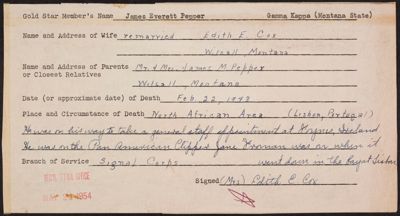 Gold Star Member's Name James Everett Pepper Gamma Kappa (Montana State)
Name and Address of Wife remarried Edith E. Cox
Wilsall, Montana
Name and Address of Parents Mr. & Mrs. James M Pepper
or Closest Relatives
Wilsall, Montana
Date (or approximate date) of Death Feb. 22, 1943
Place and Circumstance of Death North African Area (Lisbon, Portugal)
He was on his way to take a general staff appointment at
He was on the Pan American Clipper Jane Froman was on when it
Branch of Service Signal Corps went down in the Bay at Lisbon
1954
Signed (Mrs) Edith E. Cox